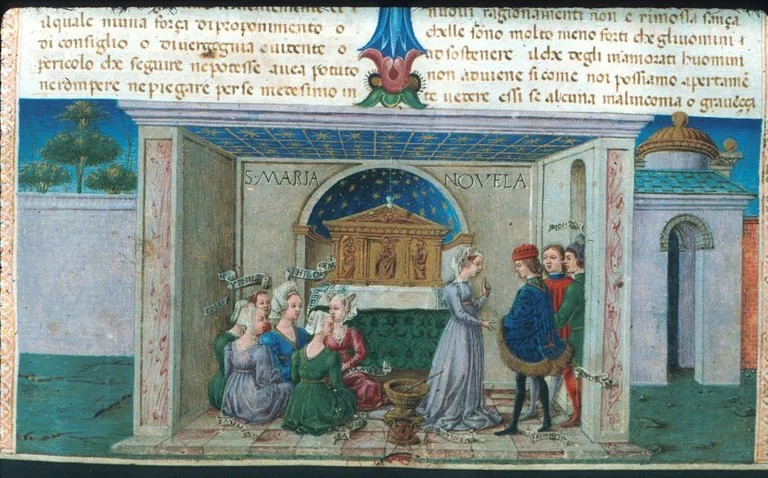 ilquale niuna força di proponimento o
di consiglio o di vergogna evidente o
pericolo che seguire ne potesse avea potuto
nerompere ne piegare per se medesimo in
nuovi ragionamenti non e rimossa sança
chelle sono molto meno forti che gliuomini a
sostenere ilche degli inamorati huomini
non aviene si come noi possiamo apertamē
te vedere essi se alcuna malinconia o graveçça
S·MARIA NOVELA